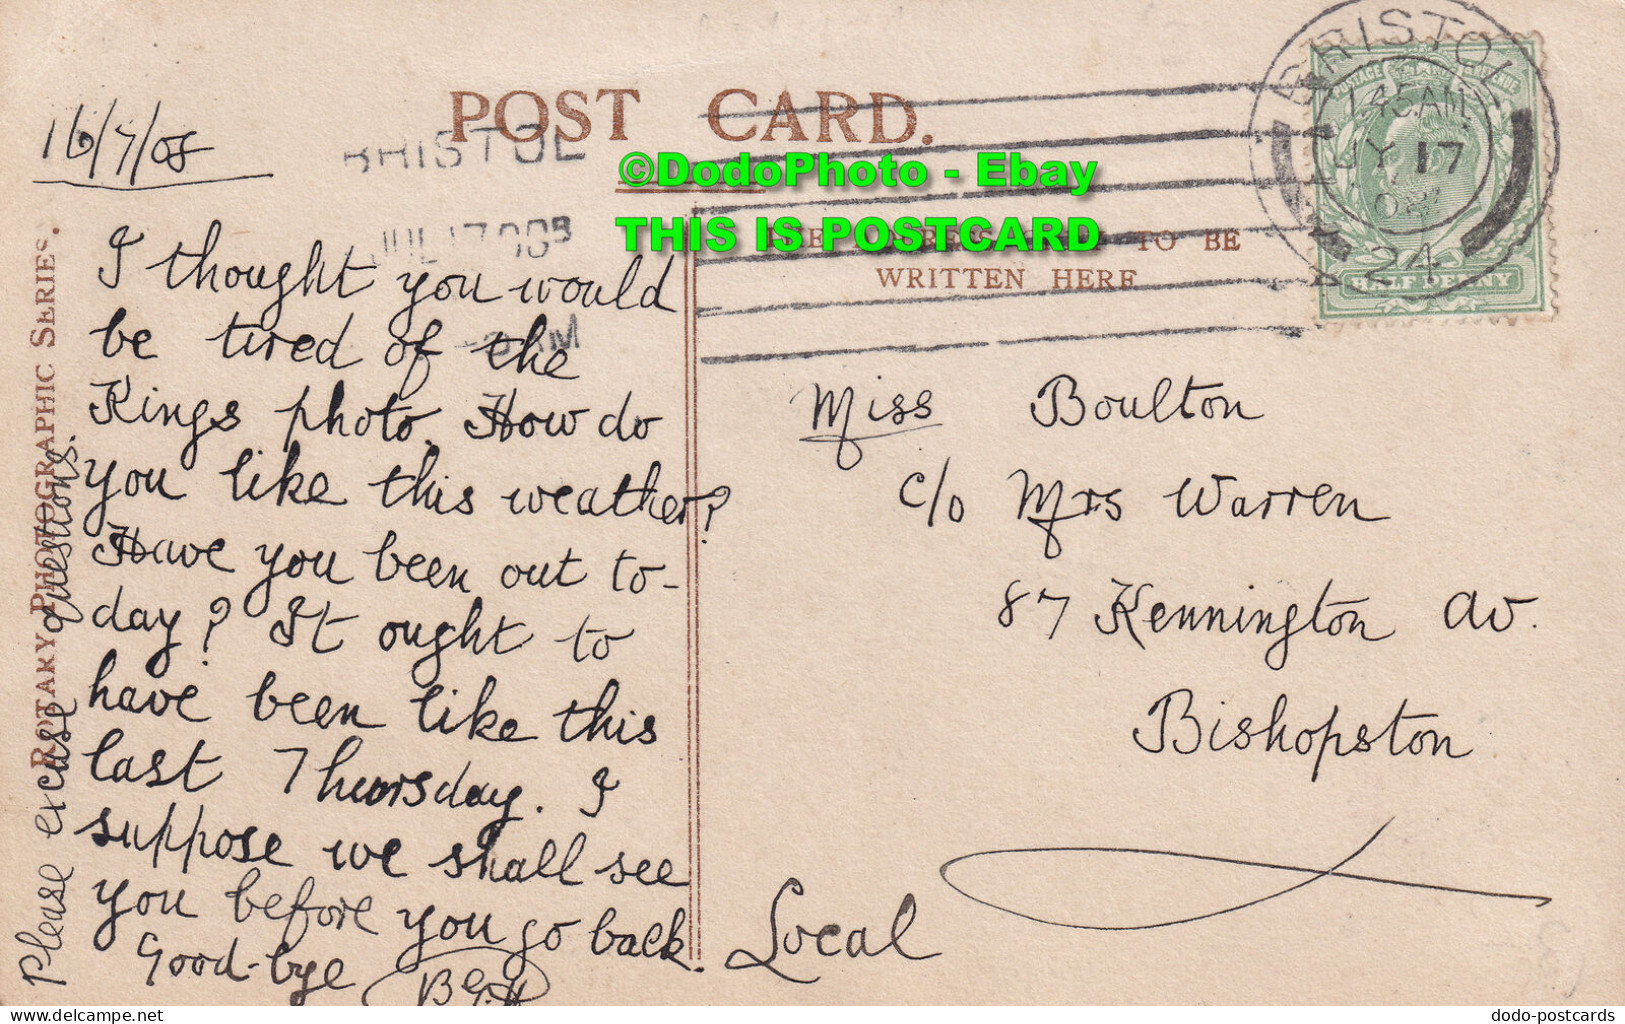 16/7/08
POST CARD.
BRISTOL
JUL 17 08
©DodoPhoto - Ebay
THIS IS POSTCARD
TO BE
WRITTEN HERE
BRISTOL
1 45 AM
JY 17
08
24
POSTAGE
HALF PENNY
I thought you would
be tired of the
Kings photo. How do
you like this weather?
Have you been out to-
day? It ought to
have been like this
last Thursday. I
suppose we shall see
you before you go back.
Good-bye
Please excuse questions.
ROTARY PHOTOGRAPHIC SERIES.
Miss Boulton
c/o Mrs Warren
87 Kennington Av.
Bishopston
Local
dodo-postcards
Delcampe.net